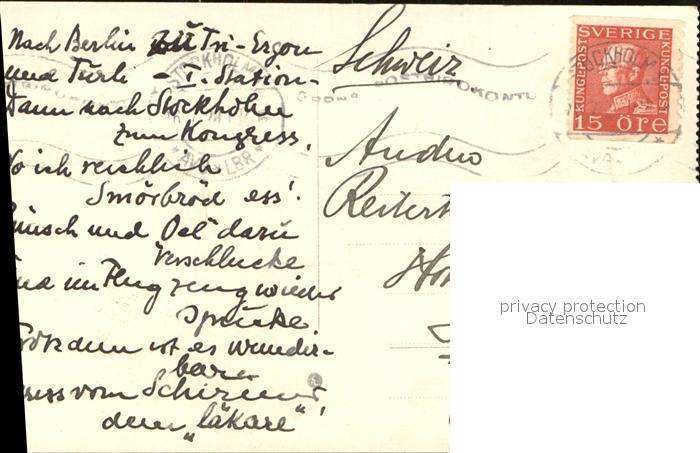 Nach Berlin zu Tri-Ergon
und Türk - I. Station -
Dann nach Stockholm
zum Kongress,
Wo ich reichlich
Smörbröd ess'.
Punsch und Oel dazu
verschlucke
und im Flugzeug wieder
spucke
Trotzdem ist es wunder-
bar
Gruss vom
dem „läkare"!
Schweiz
Andro
Reitert
STOCKHOLM
SVERIGE
KUNGEPOST
KUNGLPOST
15 ÖRE
privacy protection
Datenschutz